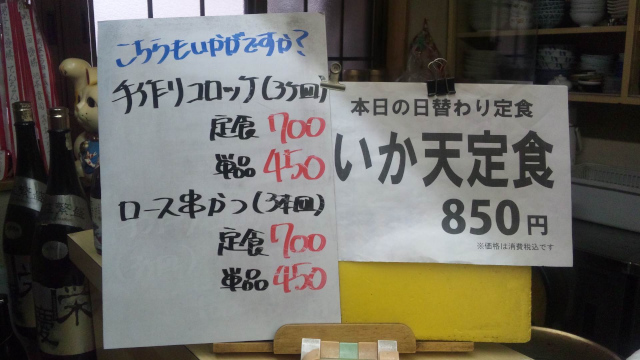 こちらもいかがですか?
手作りコロッケ(3ケ回)
定食 700
単品 450
ロース串かつ(3本回)
定食 700
単品 450
本日の日替わり定食
いか天定食
850円
※価格は消費税込です